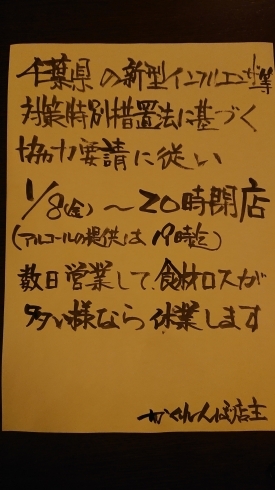 千葉県の新型インフルエンザ等
対策特別措置法に基づく
協力要請に従い
1/8(金)～20時閉店
(アルコールの提供は19時迄)
数日営業して、食材ロスが
多い様なら休業します
かくれんぼ店主